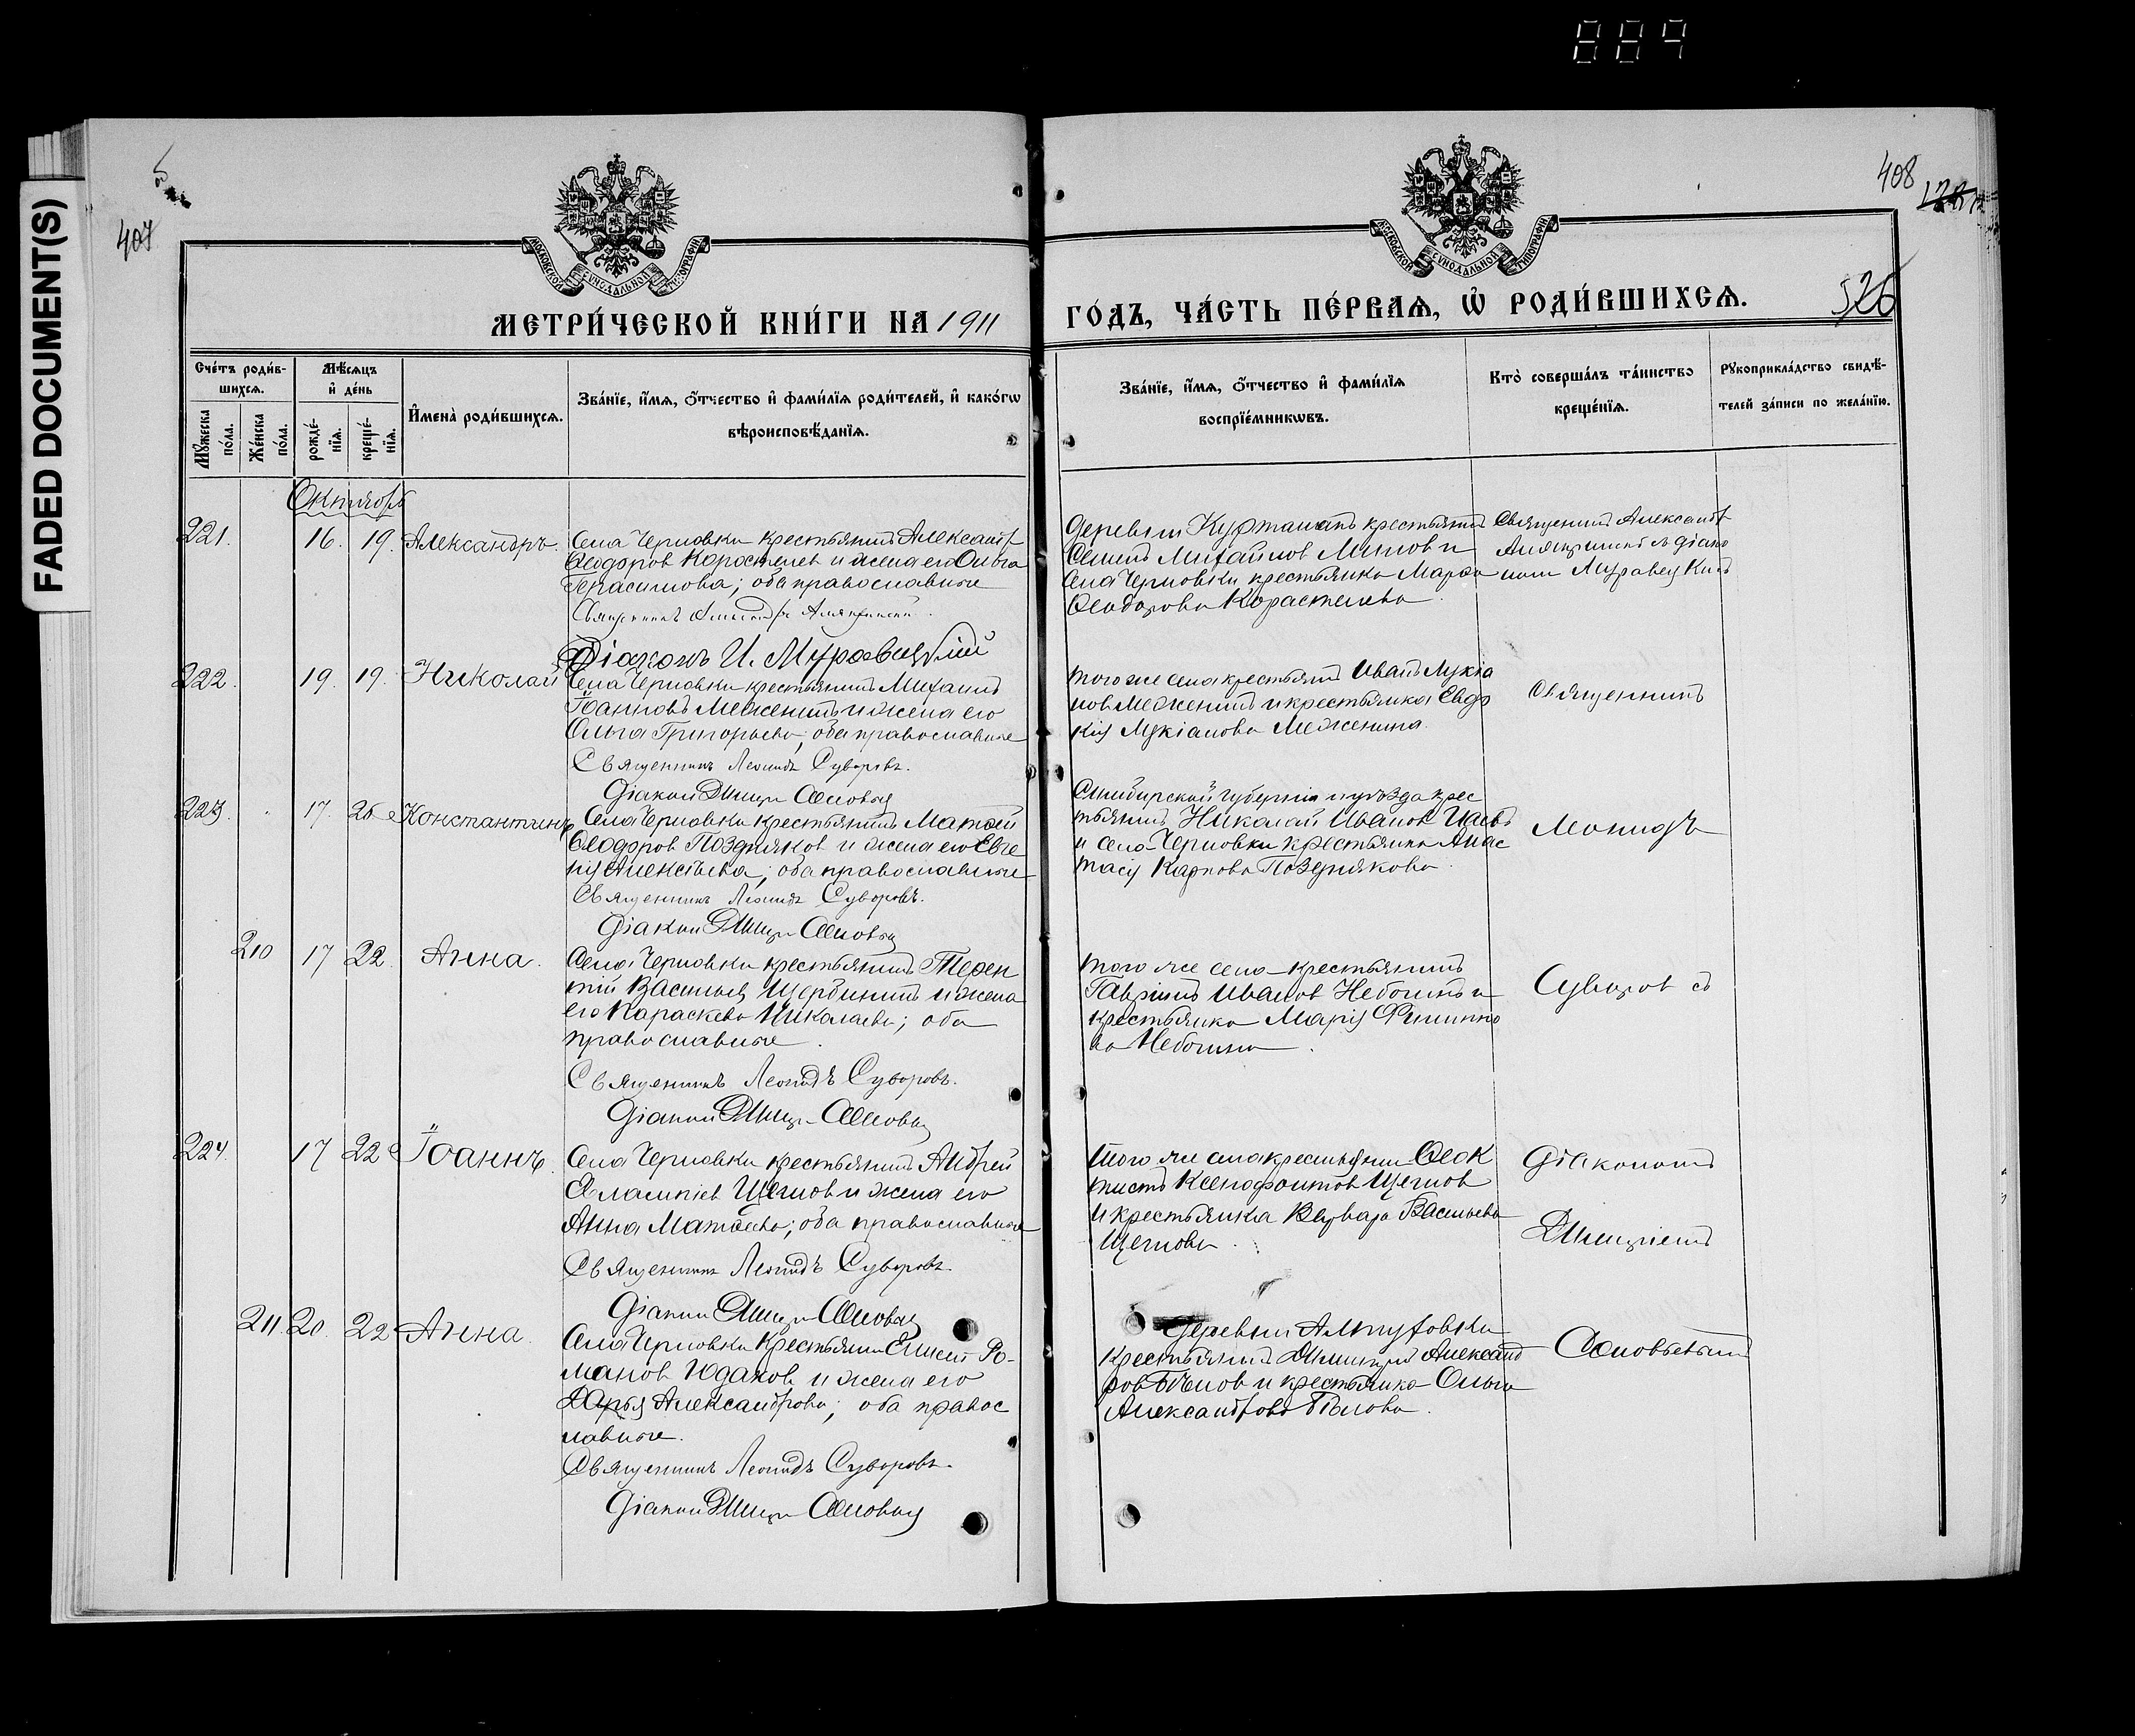 889
FADED DOCUMENT(S)
407
408
МОСКОВСКОЙ СѴНОДАЛЬНОЙ ТИПОГРАФІИ
МОСКОВСКОЙ СѴНОДАЛЬНОЙ ТИПОГРАФІИ
МЕТРИ́ЧЕСКОЙ КНИ́ГИ НА 1911
ГО́ДЪ, ЧА́СТЬ ПЕ́РВАѦ, Ѿ РОДИ́ВШИХСѦ.
526
Сче́тъ роди́в-
шихсѧ.
Мꙋ́жеска
по́ла.
Же́нска
по́ла.
Мѣ́сѧцъ
и҆ де́нь
рожде́-
нїѧ.
креще́-
нїѧ.
И҆мена̀ роди́вшихсѧ.
Зва́нїе, и҆́мѧ, ѻ҆́тчество и҆ фами́лїѧ роди́телей, и҆ како́гѡ
вѣроисповѣ́данїѧ.
Зва́нїе, и҆́мѧ, ѻ҆́тчество и҆ фами́лїѧ
воспрїе́мникѡвъ.
Кто̀ соверша́лъ та́инство
креще́нїѧ.
Рꙋкоприкла́дство свидѣ́-
телей за́писи по жела́нїю.
Октябрь
221. 16. 19. Александръ.
Села Черновки крестьянинъ Александр
Ѳеодоров Коростелев и жена его Ольга
Герасимова; оба православные
Священникъ Александръ
Діаконъ И. Муравицкій
Деревни крестьянинъ
Семенъ Михайлов и
села Черновки крестьянка Марѳа
Ѳеодорова Коростелева.
Священникъ Александр
съ діако
ном
222. 19. 19. Николай
Села Черновки крестьянинъ Михаилъ
Іоанновъ Меженинъ и жена его
Ольга Григорьева; оба православные
Священникъ Леонидъ Суворовъ.
Діакон Дмитр
того же села крестьянинъ Иванъ Лукіа
нов Меженинъ и крестьянка Евдо
кія Лукіанова Меженина.
Священникъ
223. 17. 26 Константинъ
Села Черновки крестьянинъ Матѳей
Ѳеодоров Поздняков и жена его Евге
нія Алексѣева; оба православные
Священникъ Леонидъ Суворовъ.
Діакон Дмитр
Симбирской губерніи и уѣзда крес
тьянинъ Николай Иванов
и села Черновки крестьянка Анас
тасія Карпова Позднякова.
Леонидъ
210 17 22 Анна.
Села Черновки крестьянинъ Терен
тій Васильев Щербининъ и жена
его Параскева Николаева; оба
православные.
Священникъ Леонидъ Суворовъ.
Діакон Дмитр
того же села крестьянинъ
Гавріилъ Иванов Небогинъ и
крестьянка Марія Филиппо
ва Небогина.
Суворов съ
224. 17 22 Іоаннъ.
Села Черновки крестьянинъ Андрей
Евлампіев Щеглов и жена его
Анна Матѳеева; оба православные
Священникъ Леонидъ Суворовъ.
Діакон Дмитр
того же села крестьянин Ѳеок
тистъ Ксенофонтов Щеглов
и крестьянка Варвара Васильева
Щеглова.
Діакономъ
Дмитріемъ
211. 20. 22 Анна.
Села Черновки крестьянин Елисей Ро-
манов Юдаков и жена его
Дарья Александрова; оба правос
лавные.
Священникъ Леонидъ Суворовъ.
Діакон Дмитр
Деревни
крестьянинъ Димитрій Александ
ров Бѣлов и крестьянка Ольга
Александрова Бѣлова.